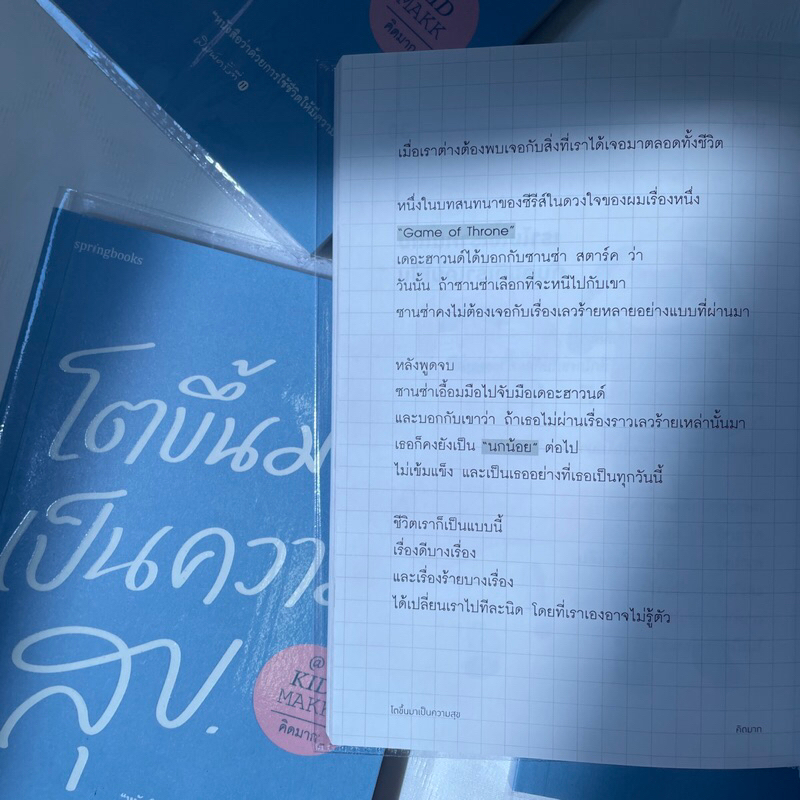 KID
MAKK
คิดมาก
"หนังสือว่าด้วยการใช้ชีวิตให้มีความ
springbooks
โตขึ้นม
เป็นควา
สุข.
@
KID
MAKK
คิดมาก
เมื่อเราต่างต้องพบเจอกับสิ่งที่เราได้เจอมาตลอดทั้งชีวิต
หนึ่งในบทสนทนาของซีรีส์ในดวงใจของผมเรื่องหนึ่ง
"Game of Throne"
เดอะฮาวนด์ได้บอกกับซานซ่า สตาร์ค ว่า
วันนั้น ถ้าซานซ่าเลือกที่จะหนีไปกับเขา
ซานซ่าคงไม่ต้องเจอกับเรื่องเลวร้ายหลายอย่างแบบที่ผ่านมา
หลังพูดจบ
ซานซ่าเอื้อมมือไปจับมือเดอะฮาวนด์
และบอกกับเขาว่า ถ้าเธอไม่ผ่านเรื่องราวเลวร้ายเหล่านั้นมา
เธอก็คงยังเป็น "นกน้อย" ต่อไป
ไม่เข้มแข็ง และเป็นเธออย่างที่เธอเป็นทุกวันนี้
ชีวิตเราก็เป็นแบบนี้
เรื่องดีบางเรื่อง
และเรื่องร้ายบางเรื่อง
ได้เปลี่ยนเราไปทีละนิด โดยที่เราเองอาจไม่รู้ตัว
โตขึ้นมาเป็นความสุข
คิดมาก